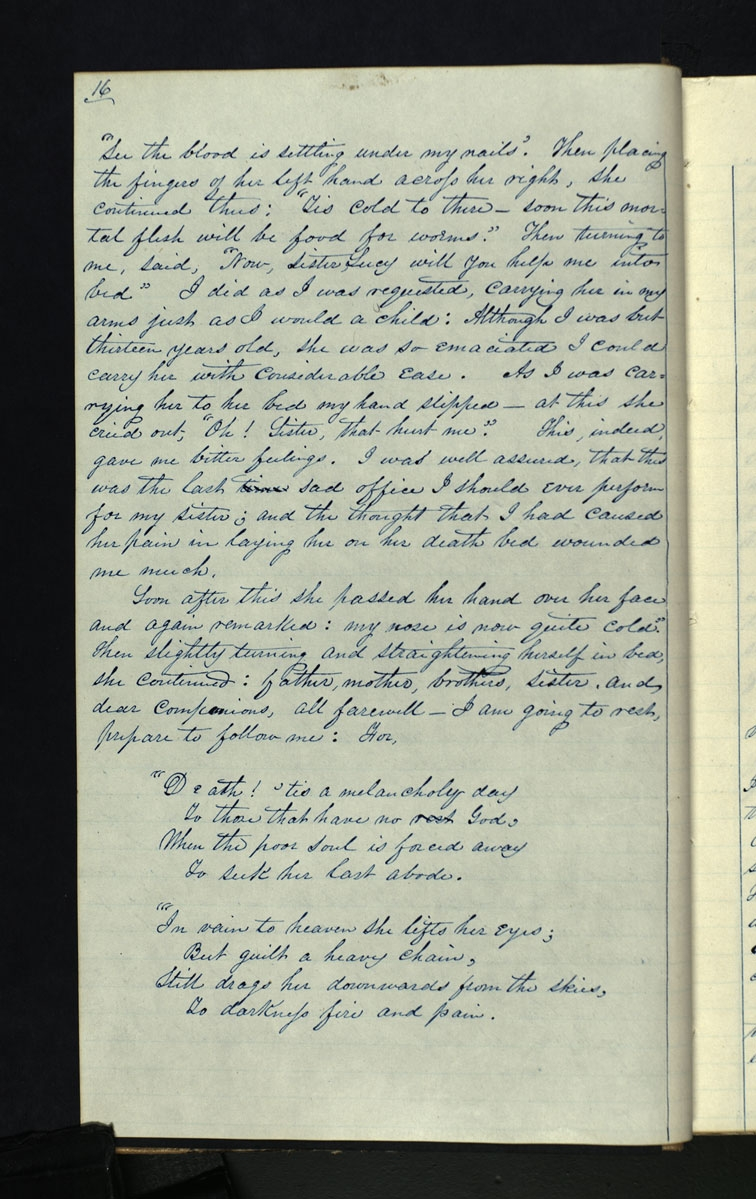 16
"See the blood is settling under my nails". Then placing
the fingers of her left hand across her right, she
continued thus: "Tis cold to there — soon this mor-
tal flesh will be food for worms." Then turning to
me, said, "Now, sister Lucy will you help me into
bed" I did as I was requested, carrying her in my
arms just as I would a child: Although I was but
thirteen years old, she was so emaciated I could
carry her with considerable ease. As I was car=
rying her to her bed my hand slipped — at this she
cried out, "Oh! Sister, that hurt me". This, indeed,
gave me bitter feelings. I was well assured, that this
was the last time sad office I should ever perform
for my sister; and the thought that I had caused
her pain in laying her on her death bed wounded
me much.
Soon after this she passed her hand over her face
and again remarked: my nose is now quite cold".
Then slightly turning and straightening herself in bed,
she continued: father, mother, brothers, sister. and,
dear companions, all farewell — I am going to rest,
prepare to follow me: For,
"Death! 'tis a melancholy day
To those that have no rest God,
When the poor soul is forced away
To seek her last abode.
"In vain to heaven she lifts her eyes;
But guilt a heavy chain,
Still drags her downwards from the skies,
To darkness fire and pain.